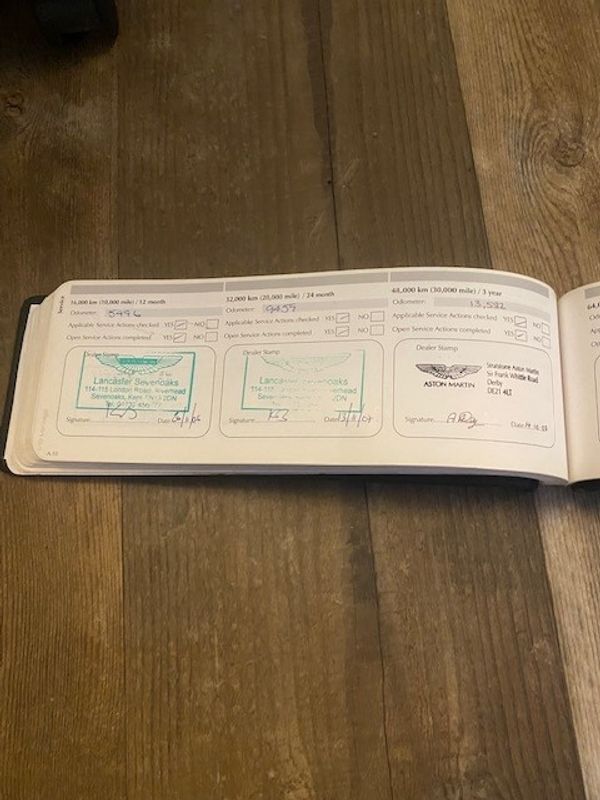 Service
16,000 km (10,000 mile) / 12 month
Odometer:
Applicable Service Actions checked YES NO
Open Service Actions completed YES NO
Dealer Stamp
Lancaster Sevenoaks
114-116 London Road, Riverhead
Sevenoaks, Kent TN13 2DN
Signature Date
32,000 km (20,000 mile) / 24 month
Odometer: 9459
Applicable Service Actions checked YES NO
Open Service Actions completed YES NO
Dealer Stamp
Lancaster Sevenoaks
Signature Date
48,000 km (30,000 mile) / 3 year
Odometer: 13,592
Applicable Service Actions checked YES NO
Open Service Actions completed YES NO
Dealer Stamp
ASTON MARTIN
Stratstone Aston Martin
Sir Frank Whittle Road
Derby
DE21 4LT
Signature Date
64,